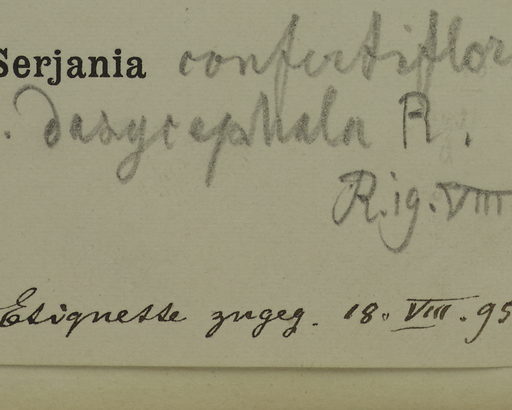 Serjania confertiflor
. dasycephala R.
R. 19. VIII
Etiquette zugeg. 18. VIII. 95